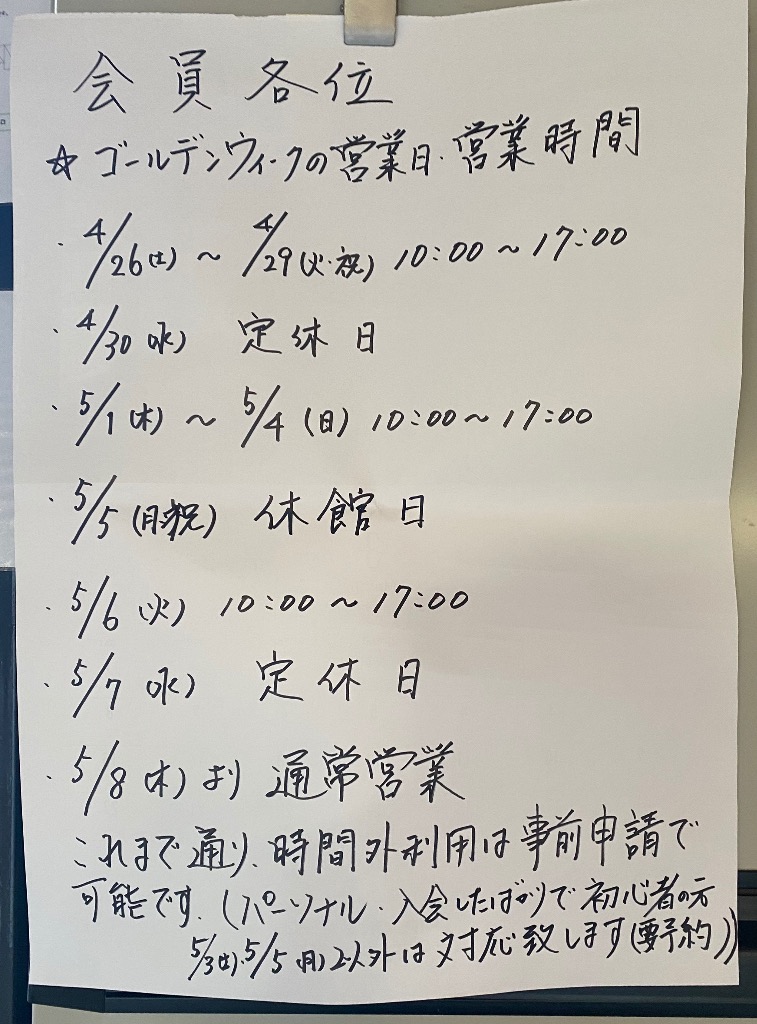 会員各位
☆ゴールデンウィークの営業日・営業時間
・4/26(土)～4/29(火・祝) 10:00～17:00
・4/30(水) 定休日
・5/1(木)～5/4(日) 10:00～17:00
・5/5(月・祝) 休館日
・5/6(火) 10:00～17:00
・5/7(水) 定休日
・5/8(木)より 通常営業
これまで通り、時間外利用は事前申請で
可能です。(パーソナル・入会したばかりで初心者の方
5/3(土)、5/5(月)以外は対応致します(要予約))